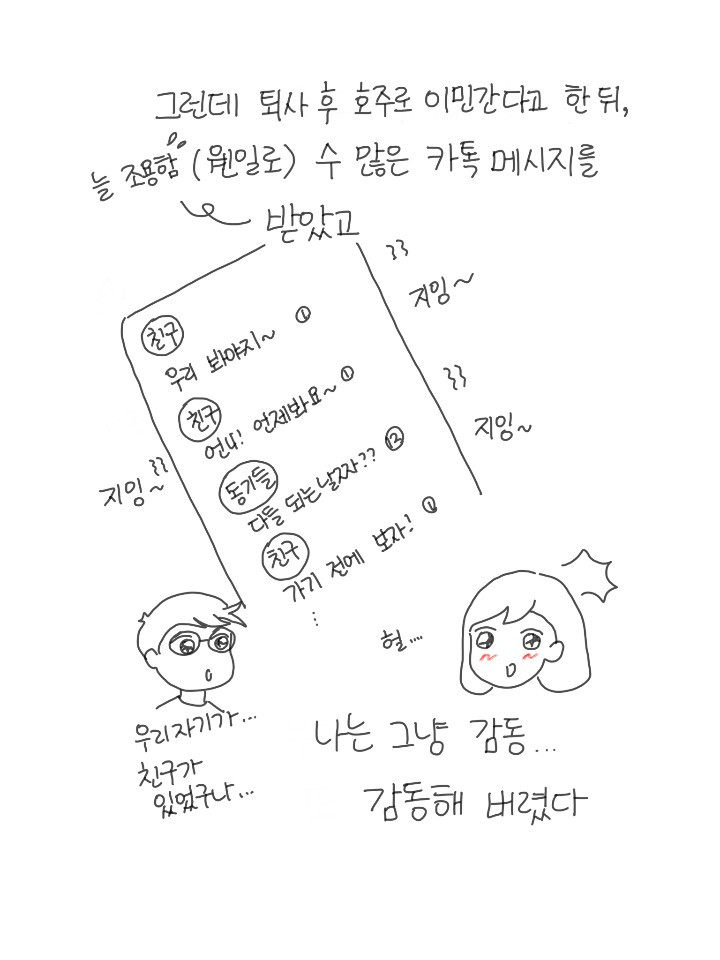 그런데 퇴사 후 호주로 이민간다고 한 뒤,
늘 조용함 (웬일로) 수 많은 카톡 메시지를
받았고
지잉~
친구 1
우리 봐야지~
친구 1
언니! 언제봐요~
지잉~
동기들 12
다들 되는날짜??
지잉~
친구 1
가기 전에 보자!
...
헐....
우리자기가...
친구가
있었구나...
나는 그냥 감동...
감동해 버렸다